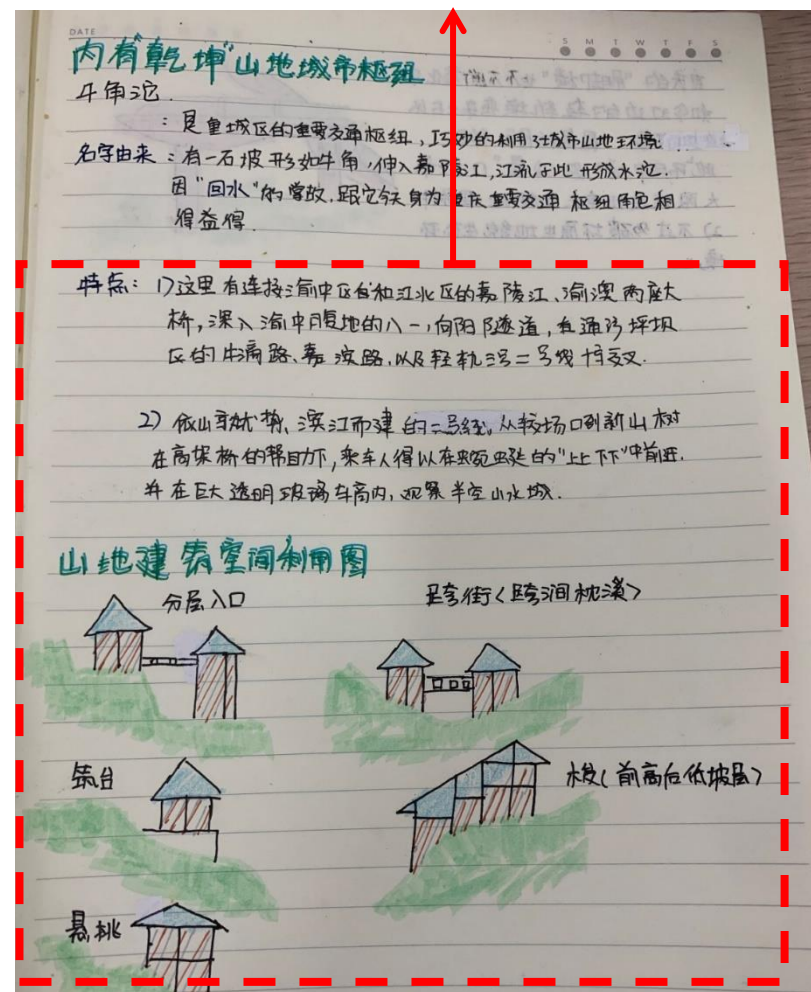 DATE
S M T W T F S
内有"乾坤"山地城市枢纽
牛角沱
：是重城区的重要交通枢纽，巧妙的利用了城市山地环境
名字由来：有一石坡形如牛角，伸入嘉陵江，江流于此形成水沱.
因"回水"的常故，跟它今天身为重庆重要交通枢纽角色相
得益得.
特点：1)这里有连接渝中区和江北区的嘉陵江、渝澳两座大
桥，深入渝中腹地的八一，向阳隧道，直通沙坪坝
区的牛滴路、嘉滨路，以及轻轨三号二号线十字交叉.
2) 依山就势、滨江而建的二号线，从较场口到新山村
在高架桥的帮助下，乘车人得以在蜿蜒的"上上下下"中前进.
并在巨大透明玻璃车高内，观景半空山水城.
山地建筑空间利用图
分层入口
跨街(跨涧枕溪)
筑台
(前高后低坡屋)
悬挑